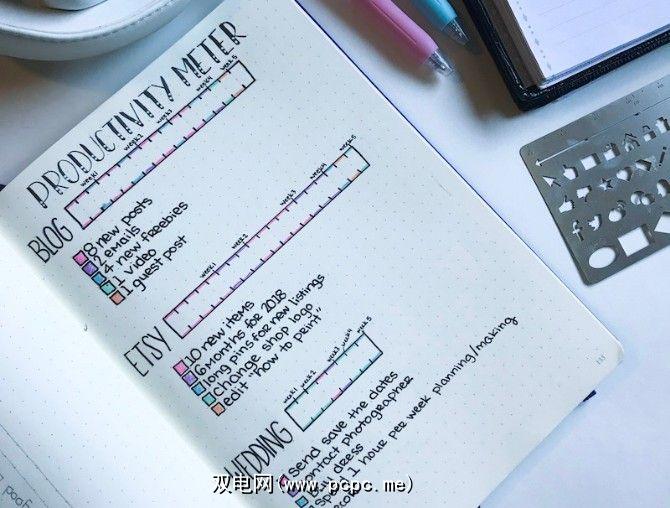 PRODUCTIVITY METER
BLOG
week 1 week 2 week 3 week 4 week 5
8 new posts
2 emails
4 new freebies
1 video
1 guest post
ETSY
week 1 week 2 week 3 week 4 week 5
10 new items
6 months for 2018
long pins for new listings
change shop logo
edit "how to print"
WEDDING
week 1 week 2 week 3 week 4 week 5
send save the dates
contact photographer
buy dress
spend 1 hour per week planning/making
decor
双电网(www.pcpc.me)